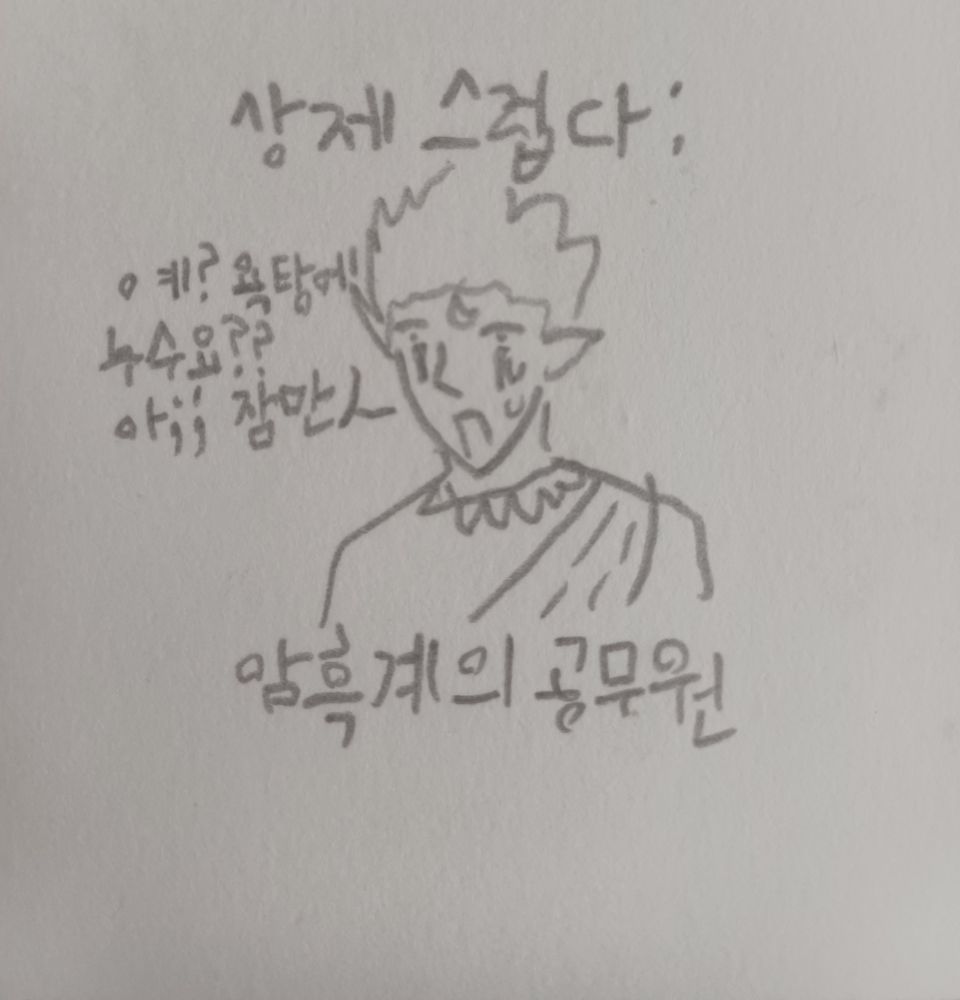 상제 스럽다;
예? 욕탕에
누수요??
아;; 잠만
암흑계의 공무원